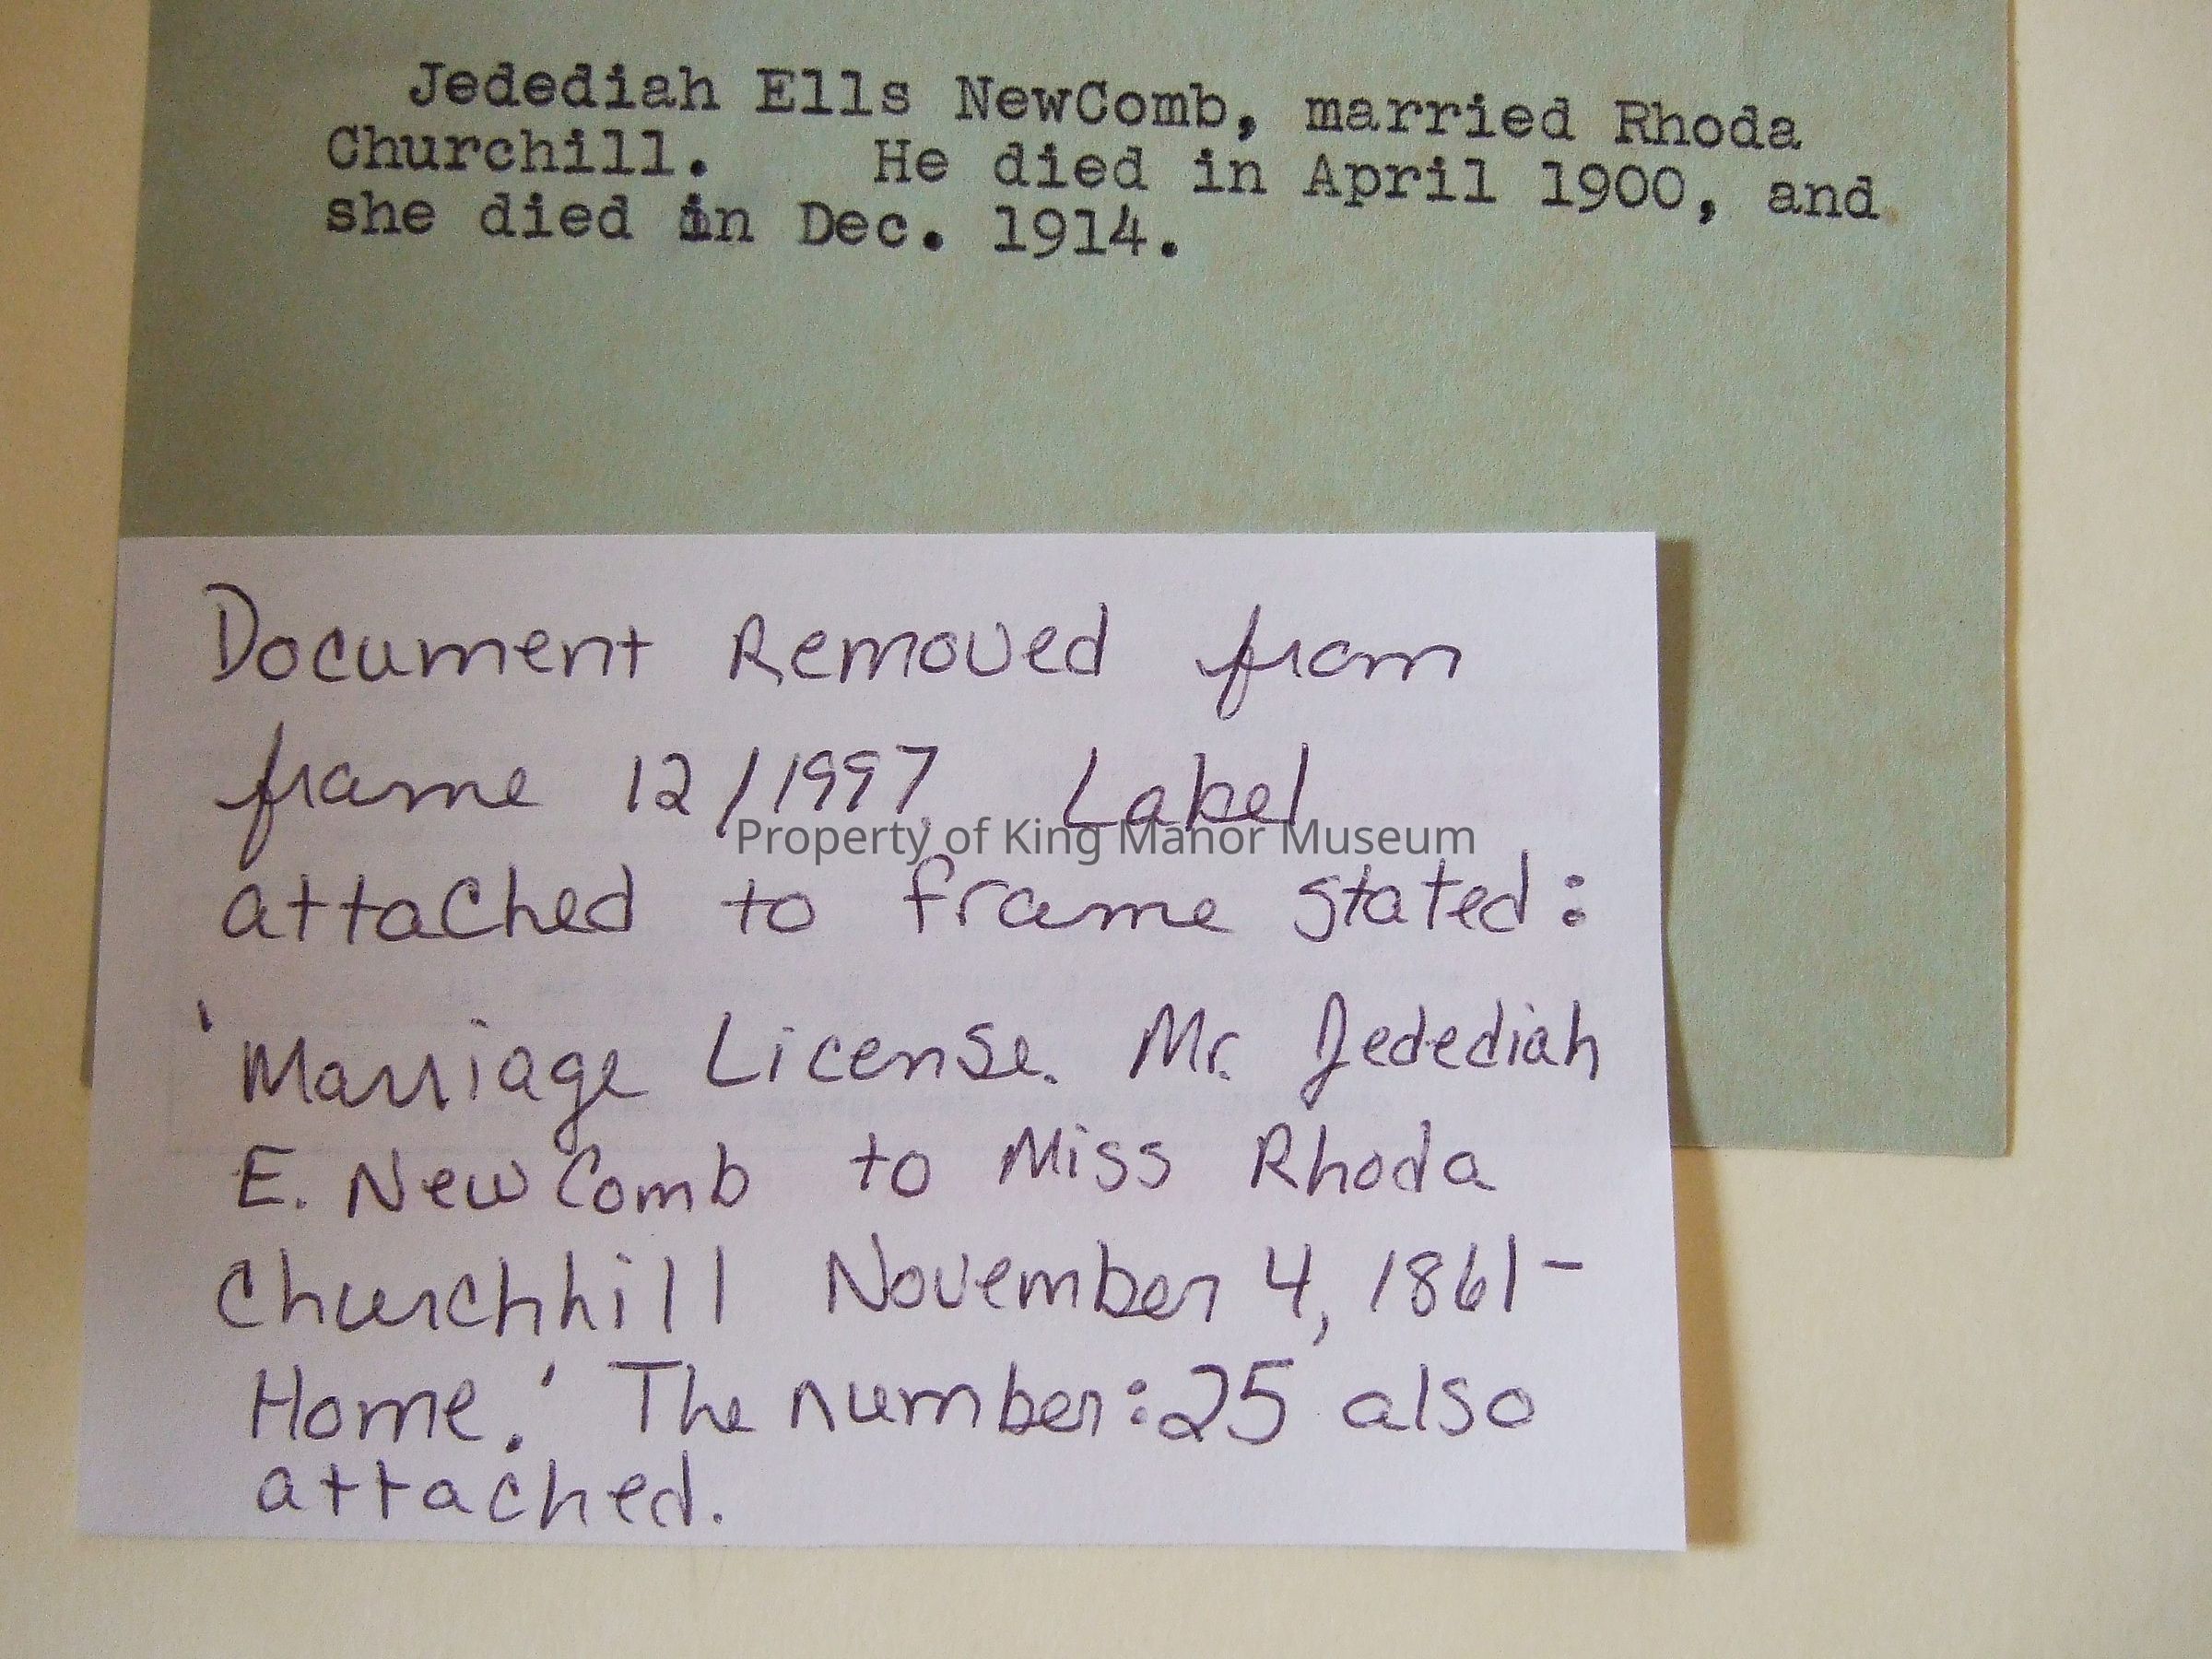 Jedediah Ells NewComb, married Rhoda
Churchill. He died in April 1900, and
she died in Dec. 1914.
Document Removed from
frame 12/1997. Label
Property of King Manor Museum
attached to frame stated:
'Marriage License. Mr. Jedediah
E. NewComb to Miss Rhoda
Churchhill November 4, 1861-
Home.' The number: 25 also
attached.